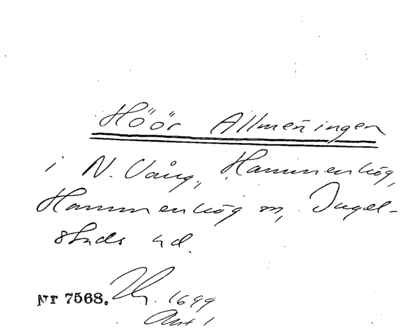 Höör Allmeningen
i N. Vång, Hammenhög,
Hammenhög sn, Ingel-
stads hd.
Nr 7568. 1699